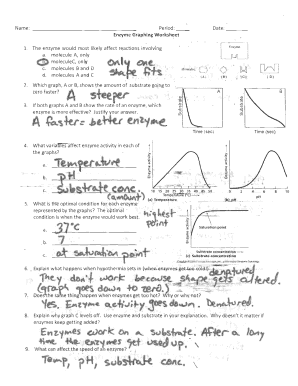 Name: Period Date:
Enzyme Graphing Worksheet
1. The enzyme would most likely affect reactions involving
a. molecule A, only
molecule C, only
c. molecules B and D
d. molecules A and C
only one
shape fits
Enzyme
(A) (B) (C) (D)
2. Which graph, A or B, shows the amount of substrate going to
zero faster?
A steeper
3. If both graphs A and B show the rate of an enzyme, which
enzyme is more effective? Justify your answer.
A faster = better enzyme
Substrate
A
Time (sec)
Substrate
B
Time (sec)
4. What variables affect enzyme activity in each of
the graphs?
a. Temperature
b. pH
c. Substrate conc.
(amount)
Enzyme activity
(a) Temperature
Enzyme activity
(b) pH
5. What is the optimal condition for each enzyme
represented by the graphs? The optimal
condition is when the enzyme would work best.
a. 37°C
b. 7
c. at satuation point
highest
point
Enzyme activity
Saturation point
Substrate concentration
(c) Substrate concentration
6. Explain what happens when hypothermia sets in (when enzymes get too cold)
denatured
They don't work because shape gets altered.
(graph goes down to zero.)
7. Does the same thing happen when enzymes get too hot? Why or why not?
Yes. Enzyme activity goes down. Denatured.
8. Explain why graph C levels off. Use enzyme and substrate in your explanation. Why doesn't it matter if
enzymes keep getting added?
Enzymes work on a substrate. After a long
time the enzymes get used up.
9. What can affect the speed of an enzyme?
Temp, pH, substrate conc.